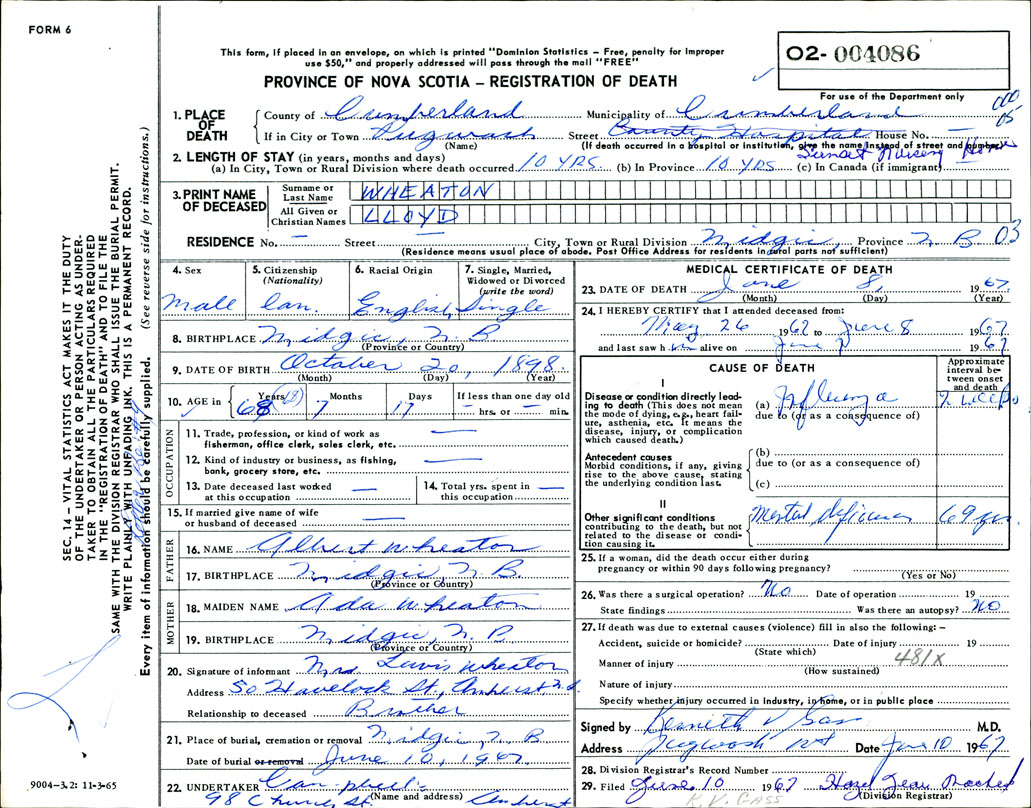 FORM 6
This form, if placed in an envelope, on which is printed "Dominion Statistics – Free, penalty for improper
use $50," and properly addressed will pass through the mail "FREE"
PROVINCE OF NOVA SCOTIA – REGISTRATION OF DEATH
02- 004086
For use of the Department only
1. PLACE OF DEATH
County of Cumberland Municipality of Cumberland
If in City or Town Pugwash Street County Hospital House No. —
(Name) (If death occurred in a hospital or institution, give the name instead of street and number)
Sunset Nursery Home
2. LENGTH OF STAY (in years, months and days)
(a) In City, Town or Rural Division where death occurred 10 YRS. (b) In Province 10 YRS (c) In Canada (if immigrant)
3. PRINT NAME OF DECEASED
Surname or Last Name WHEATON
All Given or Christian Names LLOYD
RESIDENCE No. — Street — City, Town or Rural Division Midgic, Province N B 03
(Residence means usual place of abode. Post Office Address for residents in rural parts not sufficient)
4. Sex Male
5. Citizenship (Nationality) Can.
6. Racial Origin English
7. Single, Married, Widowed or Divorced (write the word) Single
8. BIRTHPLACE Midgic, N. B
(Province or Country)
9. DATE OF BIRTH October 20, 1898
(Month) (Day) (Year)
10. AGE in 68 Years (68) 7 Months 17 Days If less than one day old — hrs. or — min.
OCCUPATION
11. Trade, profession, or kind of work as fisherman, office clerk, sales clerk, etc. —
12. Kind of industry or business, as fishing, bank, grocery store, etc. —
13. Date deceased last worked at this occupation —
14. Total yrs. spent in this occupation —
15. If married give name of wife or husband of deceased —
FATHER
16. NAME Albert Wheaton
17. BIRTHPLACE Midgic N. B.
(Province or Country)
MOTHER
18. MAIDEN NAME Ada Wheaton
19. BIRTHPLACE Midgic, N. B
(Province or Country)
20. Signature of informant Mrs Lewis Wheaton
Address 50 Havelock St, Amherst N.S.
Relationship to deceased Brother
21. Place of burial, cremation or removal Midgic, N. B
Date of burial or removal June 10, 1967
22. UNDERTAKER Campbell
(Name and address)
98 Church St. Amherst
MEDICAL CERTIFICATE OF DEATH
23. DATE OF DEATH June 8, 1967.
(Month) (Day) (Year)
24. I HEREBY CERTIFY that I attended deceased from:
May 26 1967 to June 8 1967
and last saw him alive on June 7 1967
CAUSE OF DEATH
Approximate interval between onset and death
I
Disease or condition directly leading to death (This does not mean the mode of dying, e.g., heart failure, asthenia, etc. It means the disease, injury, or complication which caused death.)
(a) Influenza 2 weeks
due to (or as a consequence of)
Antecedent causes
Morbid conditions, if any, giving rise to the above cause, stating the underlying condition last.
(b)
due to (or as a consequence of)
(c)
II
Other significant conditions contributing to the death, but not related to the disease or condition causing it.
Mental deficiency 69 yrs
25. If a woman, did the death occur either during
pregnancy or within 90 days following pregnancy?
(Yes or No)
26. Was there a surgical operation? No Date of operation 19
State findings Was there an autopsy? NO
27. If death was due to external causes (violence) fill in also the following: –
Accident, suicide or homicide? Date of injury 19
(State which)
481X
Manner of injury
(How sustained)
Nature of injury
Specify whether injury occurred in industry, in home, or in public place
Signed by Kenneth V Gass M.D.
Address Pugwash NS Date June 10 1967
28. Division Registrar's Record Number
29. Filed June 10 1967 Hazel Jean
(Division Registrar)
K. V. GASS
SEC. 14 – VITAL STATISTICS ACT MAKES IT THE DUTY
OF THE UNDERTAKER OR PERSON ACTING AS UNDER-
TAKER TO OBTAIN ALL THE PARTICULARS REQUIRED
IN THE "REGISTRATION OF DEATH" AND TO FILE THE
SAME WITH THE DIVISION REGISTRAR WHO SHALL ISSUE THE BURIAL PERMIT.
WRITE PLAINLY WITH UNFADING INK. THIS IS A PERMANENT RECORD.
Every item of information should be carefully supplied. (See reverse side for instructions.)
9004–3.2: 11-3-65